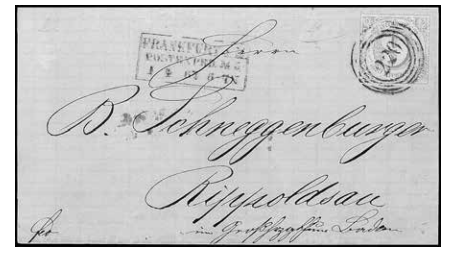 Herrn
FRANKFURT
POST EXP. N
220
B. Schneggenburger
Rippoldsau
im Großherzogthum Baden
fro